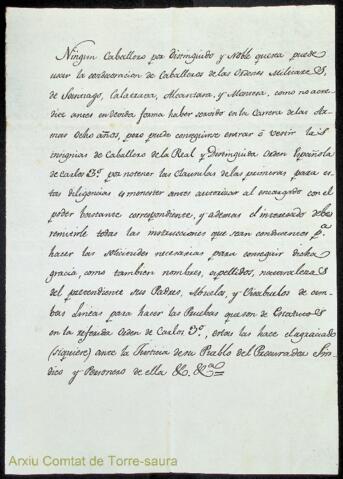 Ningun Caballero por distinguido y Noble que sea puede
usar la condecoracion de Caballeros de las Ordenes Militares
de Santiago, Calatrava, Alcantara, y Montesa, como no acre-
dite antes en devida forma haber servido en la Carrera de las Ar-
mas ocho años, pero puede conseguirse entrar ó vestir la
insignia de Caballero de la Real y Distinguida Orden Española
de Carlos 3º. por no tener las Clausulas de las primeras, para es-
tas diligencias es menester antes autorizar al encargado con el
poder bastante correspondiente, y ademas el interesado debe
remitirle todas las instrucciones que sean conducentes pª.
hacer las solicitudes necesarias para conseguir dicha
gracia, como tambien nombres, apellidos, naturalezas
del pretendiente sus Padres, Abuelos, y Visabuelos de am-
bas Lineas para hacer las Pruebas que son de Estatutos
en la referida Orden de Carlos 3º., estas las hace el agraciado
(si quiere) ante la Justicia de su Pueblo del Procurador Sin-
dico y Personero de ella &. &ª.
Arxiu Comtat de Torre-saura